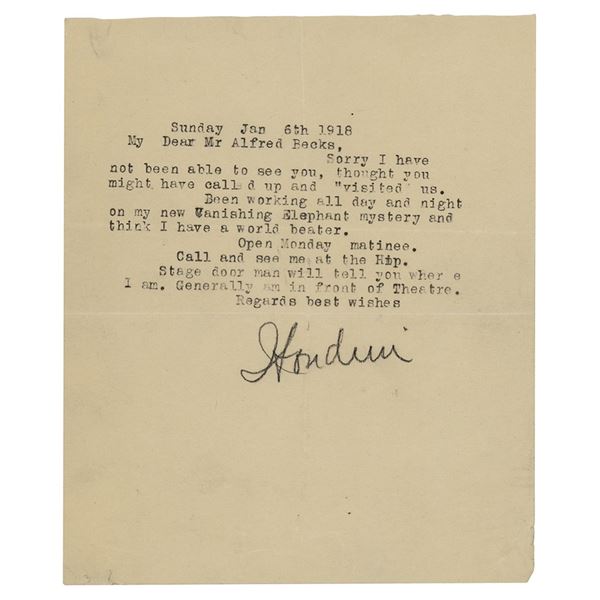 Sunday Jan 6th 1918
My Dear Mr Alfred Becks,
Sorry I have
not been able to see you, thought you
might have call d up and "visited" us.
Been working all day and night
on my new Vanishing Elephant mystery and
think I have a world beater.
Open Monday matinee.
Call and see me at the Hip.
Stage door man will tell you wher e
I am. Generally am in front of Theatre.
Regards best wishes
Houdini